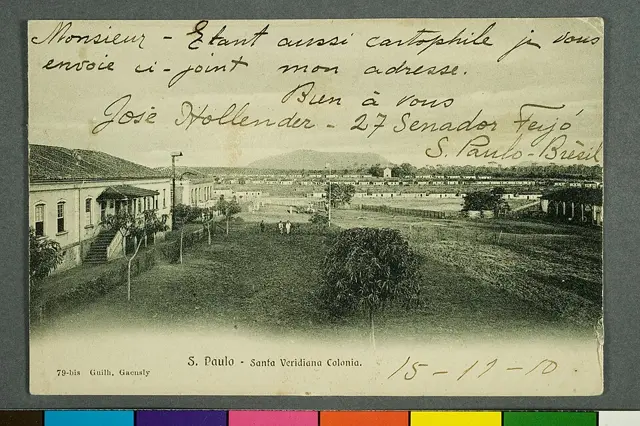 Monsieur - Etant aussi cartophile je vous
envoie ci-joint mon adresse.
Bien à vous
José Hollender - 27 Senador Feijó
S. Paulo - Brésil
S. Paulo - Santa Veridiana Colonia.
79-bis Guilh, Gaensly
15-11-10.